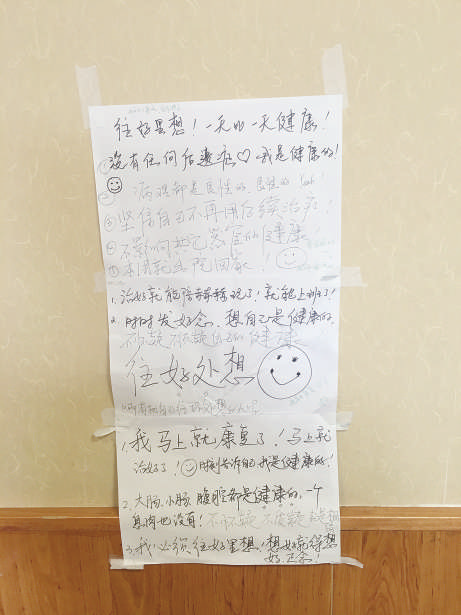 往好里想！一天比一天健康！
①没有任何后遗症♡我是健康的！
② 病理都是良性的，良性的 Yeah！
③坚信自己不再用后续治疗！
④不影响其它器官的健康！
⑤本周就出院回家！
1.治好就能陪 玩了！就能上班了！
2.时时发好念，想自己是健康的，
不怀疑 自己的健康
往好处想
1.我马上就康复了！马上就
治好了！时刻告诉自己我是健康的！
2.大肠、小肠、腹腔都是健康的，一个
息肉也没有！不怀疑
3.我必须往好里想！想好就得想
好，正念！